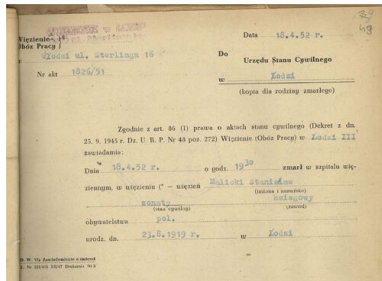 Więzienie
Obóz Pracy
w Łodzi ul. Sterlinga 16
Nr akt 1826/51
Data 18.4.52 r.
Do
Urzędu Stanu Cywilnego
w Łodzi
(kopia dla rodziny zmarłego)
Zgodnie z art. 86 (1) prawa o aktach stanu cywilnego (Dekret z dn.
25. 9. 1945 r. Dz. U. R. P. Nr 48 poz. 272) Więzienie (Obóz Pracy) w Łodzi III
zawiadamia:
Dnia 18.4.52 r. o godz. 19 30 zmarł w szpitalu wię-
ziennym, w więzieniu (* — więzień Stanisław
(imiona i nazwisko)
żonaty księgowy
(stan cywilny) (zawód)
obywatelstwa pol.
urodz. dn. 23.8.1919 r. w Łodzi